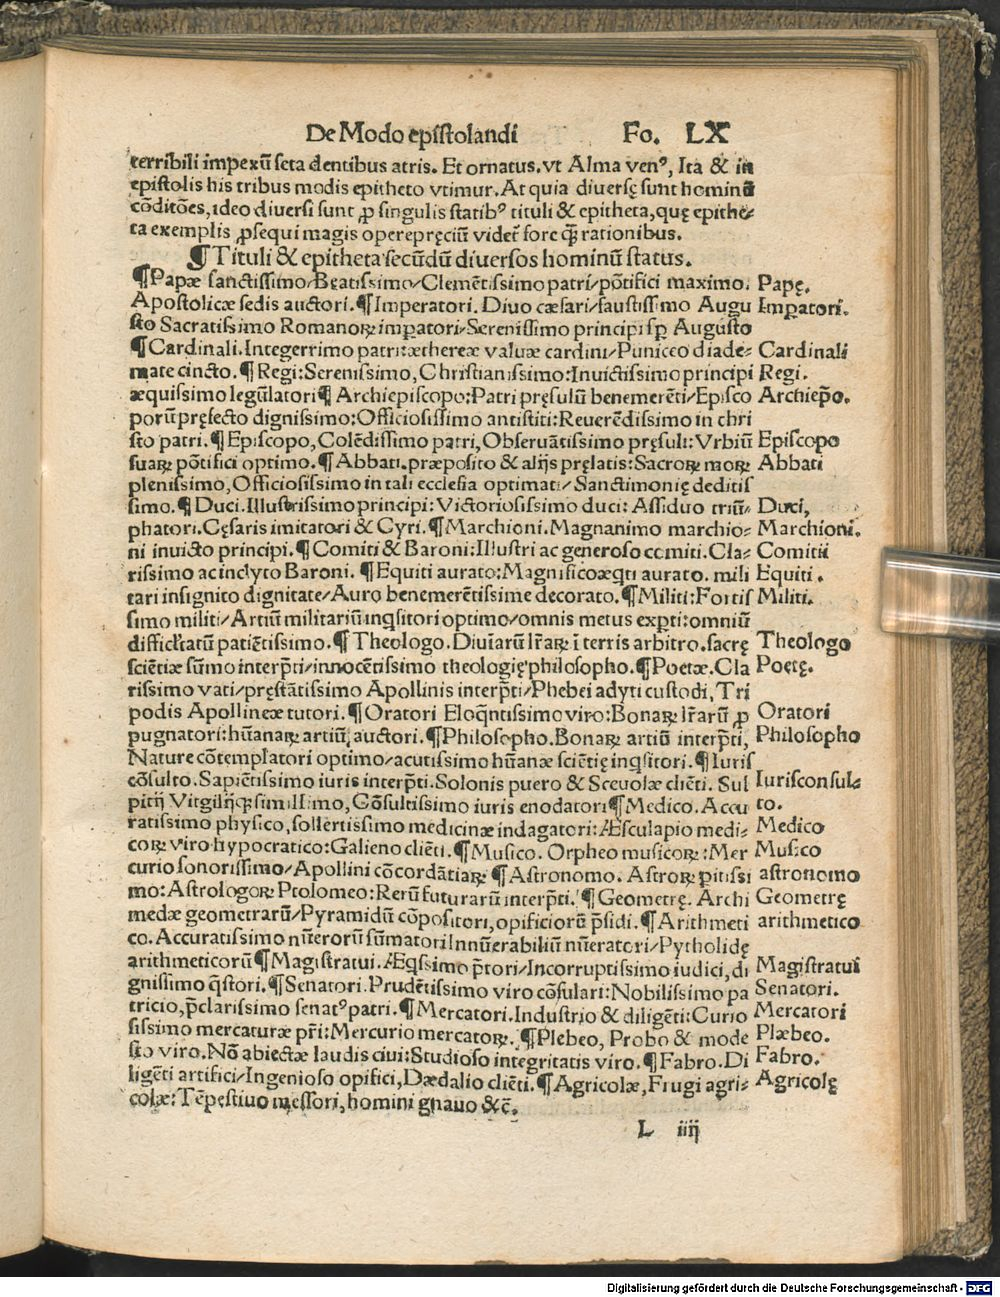 De Modo epistolandi Fo. LX
terribili impexū seta dentibus atris. Et ornatus. vt Alma venꝰ, Ita & in
epistolis his tribus modis epitheto vtimur. At quia diuersę sunt hominū
cōditōes, ideo diuersi sunt ꝓ singulis statibꝰ tituli & epitheta, quę epithe⸗
ta exemplis ꝓsequi magis operepręciū videt̄ fore q̄ꝫ rationibus.
¶ Tituli & epitheta secūdū diuersos hominū status.
¶ Papæ sanctissimo/Beatissimo/Clemētissimo patri/pōtifici maximo. Papę.
Apostolicæ sedis auctori. ¶ Imperatori. Diuo cæsari/faustissimo Augu Imꝑatori.
sto Sacratissimo Romanoꝝ imꝑatori/Serenissimo principi sꝑ Augusto
¶ Cardinali. Integerrimo patri: æthereæ valuæ cardini/Puniceo diade⸗ Cardinali
mate cincto. ¶ Regi: Serenissimo, Christianissimo: Inuictissimo principi Regi.
æquissimo legūlatori ¶ Archiepiscopo: Patri pręsulū benemerēti/Episco Archiep̄o.
porū pręfecto dignissimo: Officiosissimo antistiti: Reuerēdissimo in chri
sto patri. ¶ Episcopo, Colēdissimo patri, Obseruātissimo pręsuli: Vrbiū Episcopo
suaꝝ pōtifici optimo. ¶ Abbati. præposito & alijs pręlatis: Sacroꝝ moꝝ Abbati
plenissimo, Officiosissimo in tali ecclesia optimati/Sanctimonię deditis
simo. ¶ Duci. Illustrissimo principi: Victoriosissimo duci: Assiduo triū⸗ Duci,
phatori. Cęsaris imitatori & Cyri. ¶ Marchioni. Magnanimo marchio⸗ Marchioni.
ni inuicto principi. ¶ Comiti & Baroni: Illustri ac generoso comiti. Cla⸗ Comitii
rissimo ac inclyto Baroni. ¶ Equiti aurato: Magnifico æq̄ti aurato. mili Equiti.
tari insignito dignitate/Auro benemerētissime decorato. ¶ Militi: Fortis Militi.
simo militi/Artiū militariū inq̄sitori optimo/omnis metus exꝑti: omniū
difficl̄tatū patiētissimo. ¶ Theologo. Diuīarū lr̄aꝝ ī terris arbitro. sacrę Theologo
sciētiæ sūmo interp̄ti/innocētissimo theologię philosopho. ¶ Poetæ. Cla Poetę.
rissimo vati/pręstātissimo Apollinis interp̄ti/Phebei adyti custodi, Tri
podis Apollineæ tutori. ¶ Oratori Eloq̄ntissimo viro: Bonaꝝ lr̄arū ꝓ Oratori
pugnatori: hūanaꝝ artiū, auctori. ¶ Philosopho. Bonaꝝ artiū interp̄ti, Philosopho
Nature cōtemplatori optimo/acutissimo hūanæ sciētię inq̄sitori. ¶ Iuris
cōsulto. Sapiētissimo iuris interp̄ti. Solonis puero & Sceuolæ cliēti. Sul Iurisconsul⸗
pitij Vitgilijqꝫ simillimo, Cōsultissimo iuris enodatori ¶ Medico. Accu to.
ratissimo physico, sollertissimo medicinæ indagatori: Æsculapio medi⸗ Medico
coꝝ viro hypocratico: Galieno cliēti. ¶ Musico. Orpheo musicoꝝ: Mer Musico
curio sonorissimo/Apollini cōcordātiaꝝ ¶ Astronomo. Astroꝝ ꝑitissi astronomo
mo: Astrologoꝝ Ptolomeo: Rerū futurarū interp̄ti. ¶ Geometrę. Archi Geometrę
medæ geometrarū/Pyramidū cōpositori, opificiorū p̄sidi. ¶ Arithmeti arithmetico
co. Accuratissimo nūerorū sūmatori Innūerabiliū nūeratori/Pytholidę
arithmeticorū ¶ Magistratui. Æq̄ssimo p̄tori/Incorruptissimo iudici, di Magistratui
gnissimo q̄stori. ¶ Senatori. Prudētissimo viro cōsulari: Nobilissimo pa Senatori.
tricio, p̄clarissimo senatꝰ patri. ¶ Mercatori. Industrio & diligēti: Curio Mercatori
sissimo mercaturæ pr̄i: Mercurio mercatoꝝ. ¶ Plebeo, Probo & mode Plæbeo.
sto viro. Nō abiectæ laudis ciui: Studioso integritatis viro. ¶ Fabro. Di Fabro.
ligēti artifici/Ingenioso opifici, Dædalio cliēti. ¶ Agricolæ, Frugi agri⸗ Agricolę
colæ: Tēpestiuo messori, homini gnauo &c̄.
L iiij
Digitalisierung gefördert durch die Deutsche Forschungsgemeinschaft - DFG